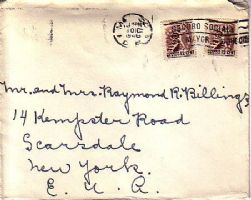 SOCORO SOCIAL
MAYOR
Mr. and Mrs. Raymond R. Billings
14 Kempster Road
Scarsdale
New York.
E. U. A.